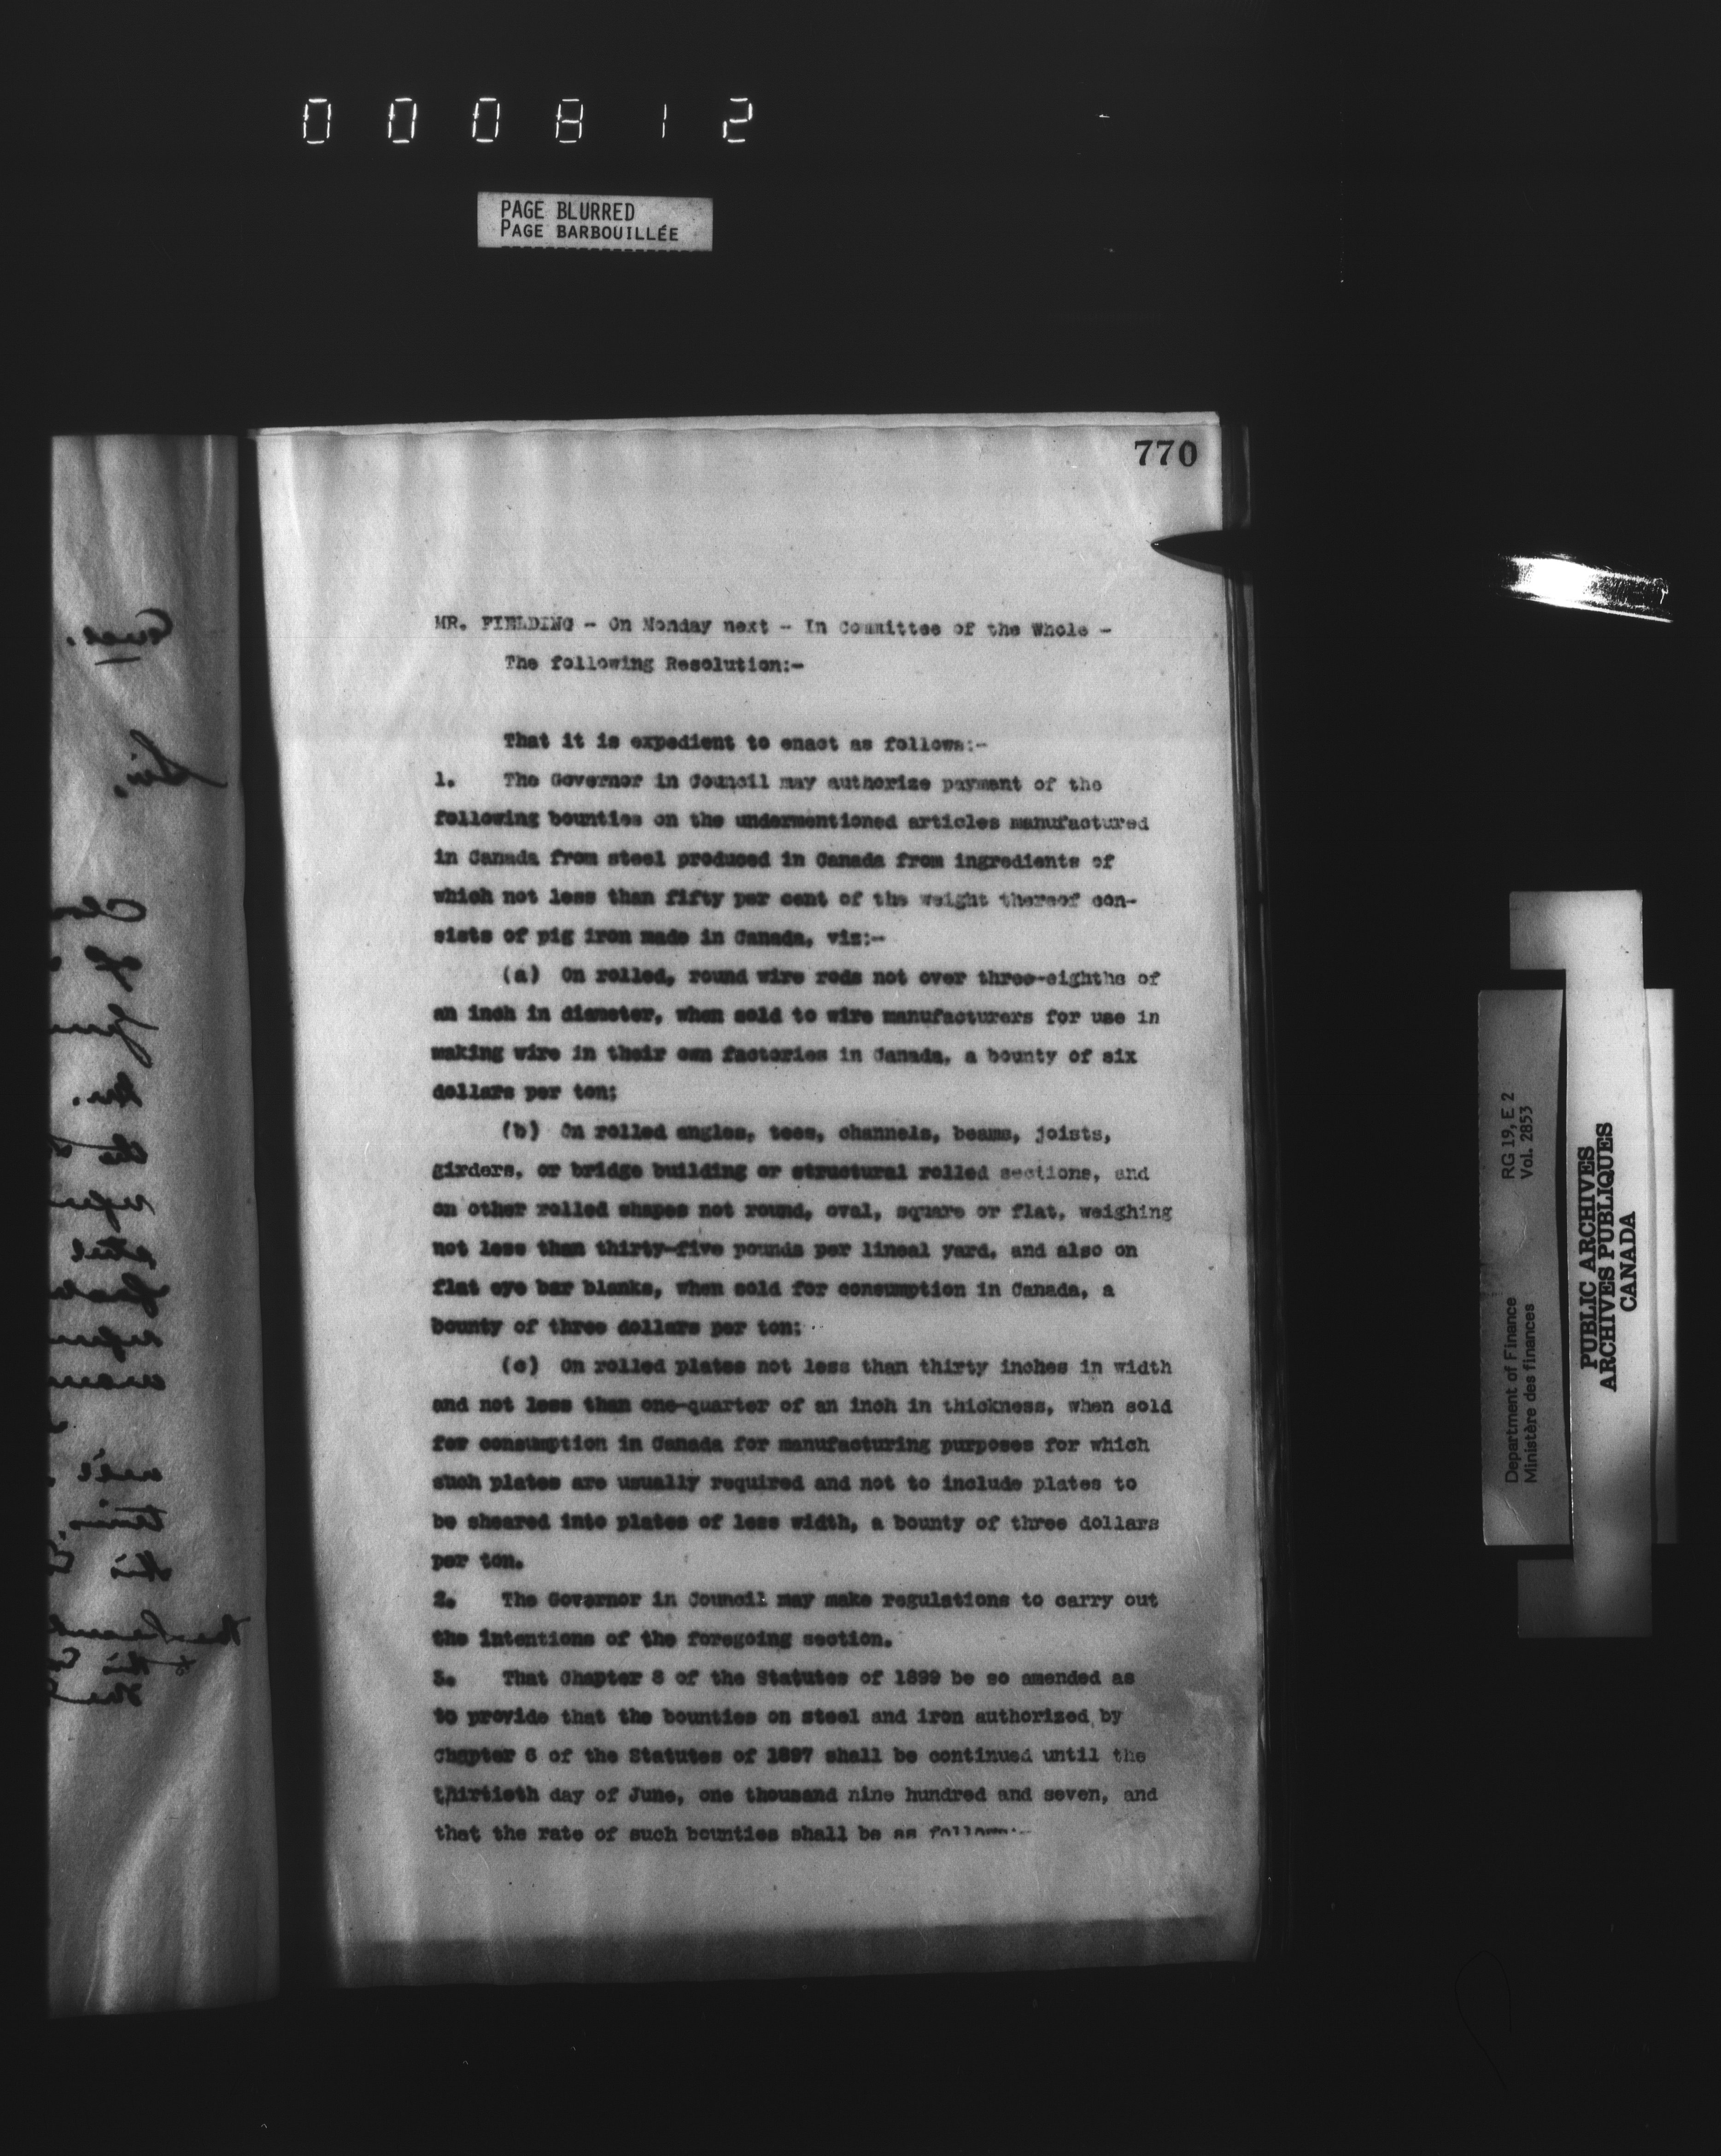 000812
PAGE BLURRED
PAGE BARBOUILLÉE
770
MR. FIELDING - On Monday next - In Committee of the Whole -
The following Resolution:-
That it is expedient to enact as follows:-
1. The Governor in Council may authorize payment of the
following bounties on the undermentioned articles manufactured
in Canada from steel produced in Canada from ingredients of
which not less than fifty per cent of the weight thereof con-
sists of pig iron made in Canada, viz:-
(a) On rolled, round wire rods not over three-eighths of
an inch in diameter, when sold to wire manufacturers for use in
making wire in their own factories in Canada, a bounty of six
dollars per ton;
(b) On rolled angles, tees, channels, beams, joists,
girders, or bridge building or structural rolled sections, and
on other rolled shapes not round, oval, square or flat, weighing
not less than thirty-five pounds per lineal yard, and also on
flat eye bar blanks, when sold for consumption in Canada, a
bounty of three dollars per ton;
(c) On rolled plates not less than thirty inches in width
and not less than one-quarter of an inch in thickness, when sold
for consumption in Canada for manufacturing purposes for which
such plates are usually required and not to include plates to
be sheared into plates of less width, a bounty of three dollars
per ton.
2. The Governor in Council may make regulations to carry out
the intentions of the foregoing section.
3. That Chapter 8 of the Statutes of 1899 be so amended as
to provide that the bounties on steel and iron authorized by
Chapter 6 of the Statutes of 1897 shall be continued until the
thirtieth day of June, one thousand nine hundred and seven, and
that the rate of such bounties shall be as follows:-
Department of Finance RG 19, E 2
Ministère des finances Vol. 2853
PUBLIC ARCHIVES
ARCHIVES PUBLIQUES
CANADA
Sir.